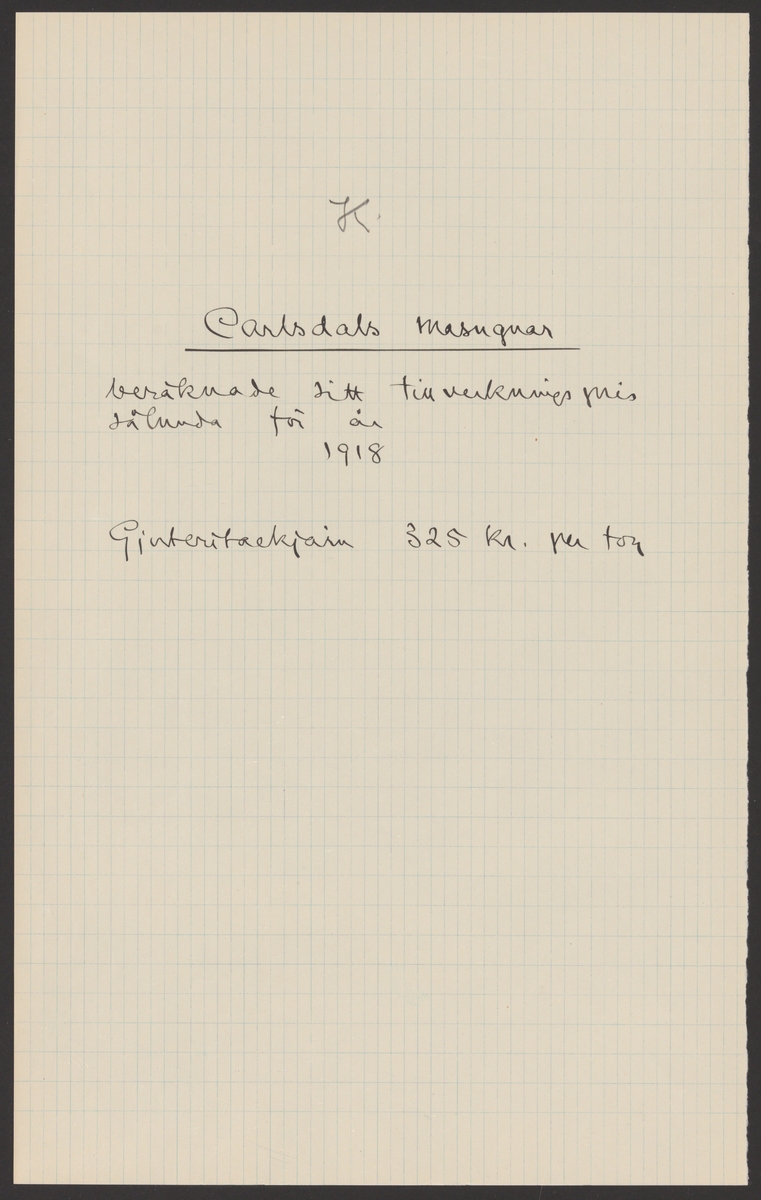 K.
Carlsdals masugnar
beräknade sitt tillverkningspris
sålunda för år
1918
Gjuteritackjärn 325 kr. per ton